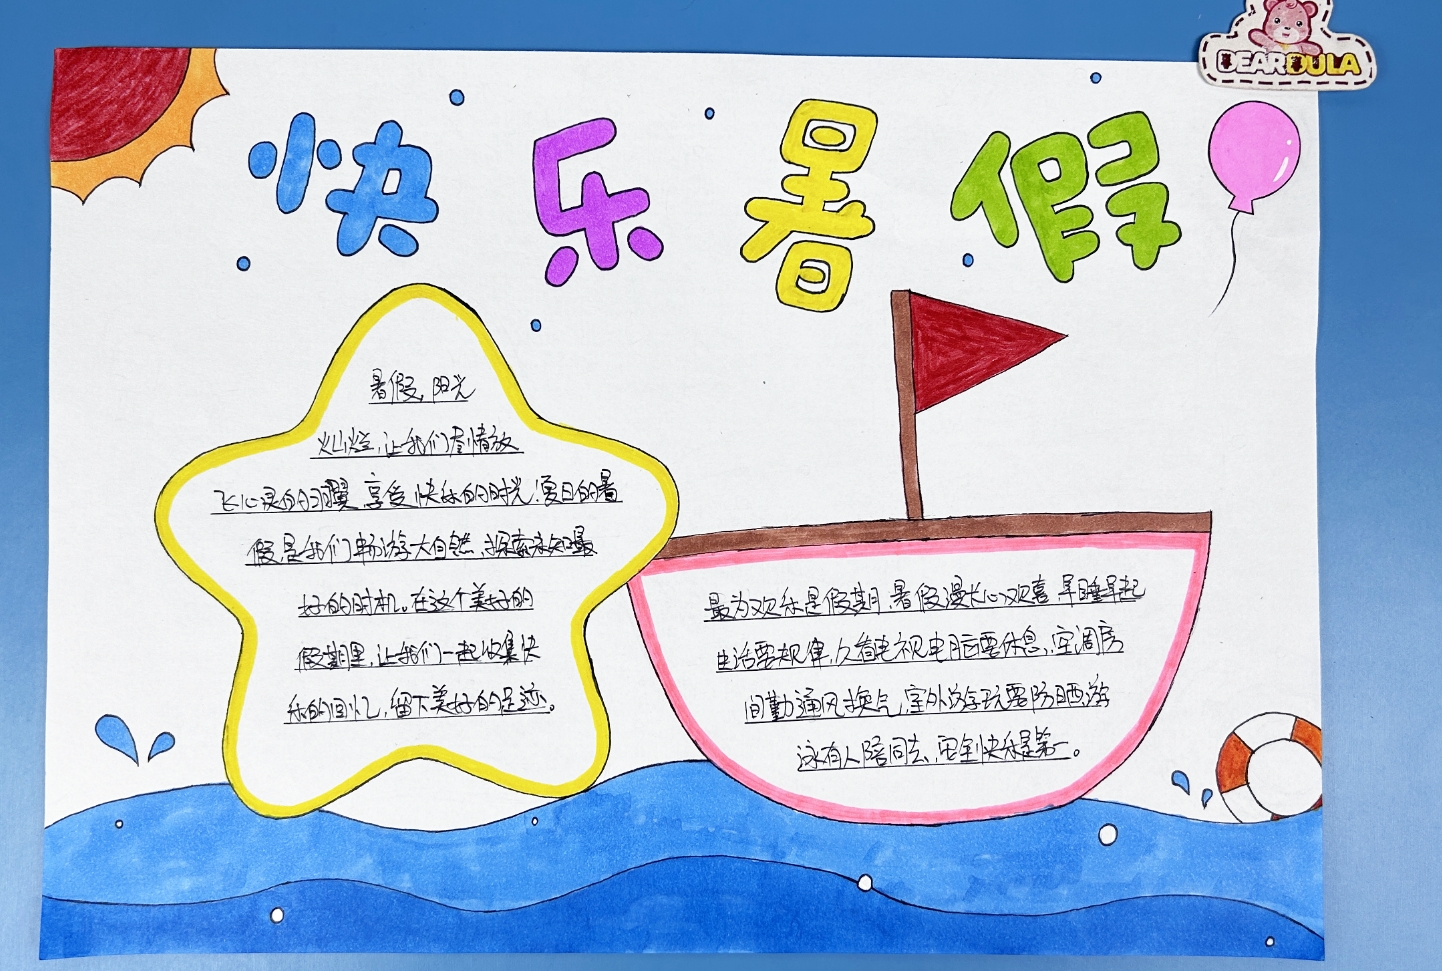 DEARDULA
快乐暑假
暑假,阳光
灿烂,让我们尽情放
飞心灵的羽翼,享受快乐的时光!夏日的暑
假,是我们畅游大自然、探索未知最
好的时机。在这个美好的
假期里,让我们一起收集快
乐的回忆,留下美好的足迹。
最为欢乐是假期,暑假漫长心欢喜,早睡早起
生活要规律,久看电视电脑要休息,空调房
间勤通风换气,室外游玩需防晒,游
泳有人陪同去,安全快乐是第一。